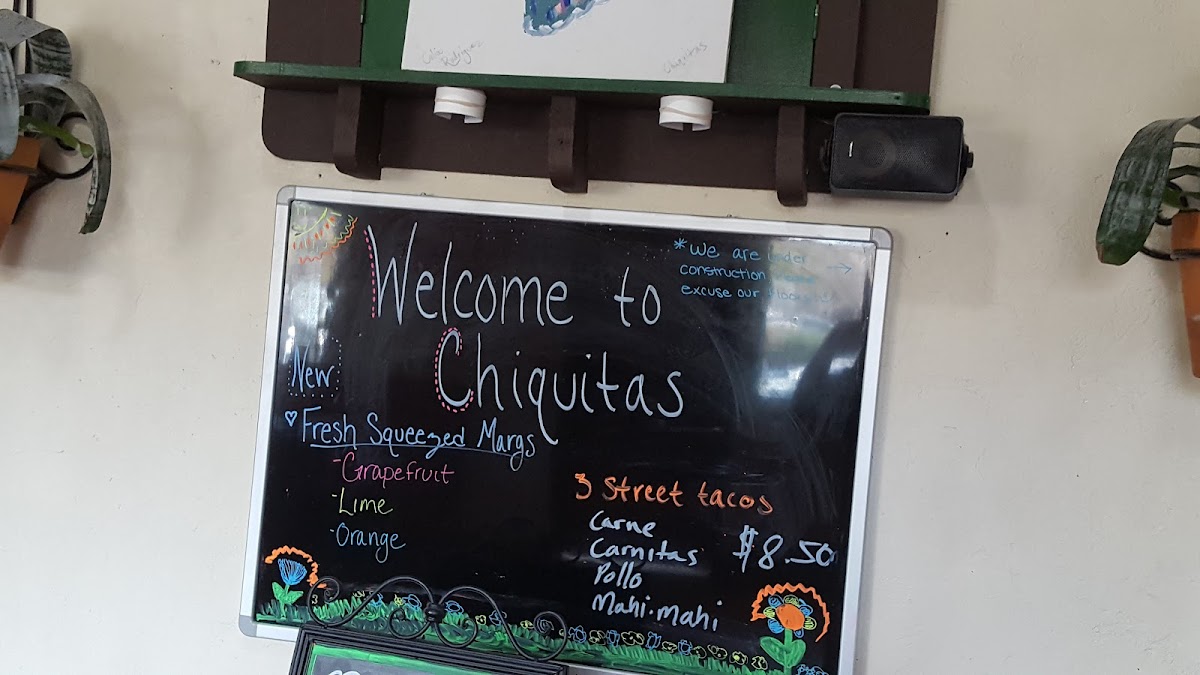 Celia
Rodriguez
Chiquitas
Welcome to
Chiquitas
* We are under
construction please →
excuse our floors
New
♡ Fresh Squeezed Margs
- Grapefruit
- Lime
- Orange
3 Street tacos
Carne
Carnitas
Pollo
Mahi-mahi
$8.50